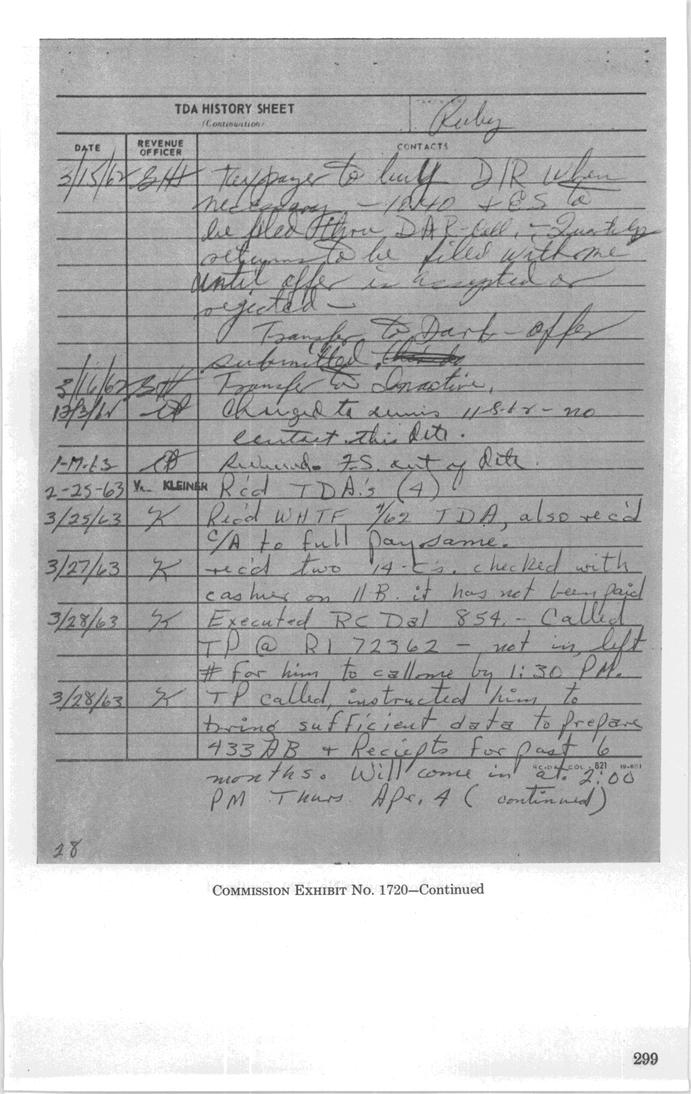 TDA HISTORY SHEET
(Continuation)
Ruby
DATE
REVENUE OFFICER
CONTACTS
3/15/62 Taxpayer to D/R when
necessary - 1040 + ES to
be filed thru DAR-Cell. - Quarterly
returns to be filed with me
until offer is accepted or
rejected -
Transfer to Dark - offer
submitted.
3/16/62 Transfer to Inactive.
12/3/62 Changed to 11-8-62 - no
contact this date.
1-17-63 F.S. out of date.
2-25-63 KLEINER Rc'd TDA's (4)
3/25/63 K Rec'd WHTF 9/62 TDA, also rec'd
C/A to full pay same.
3/27/63 K rec'd two 14-C's. checked with
cashier on 11 B. it has not been paid
3/28/63 K Executed RC Dal 854. - Called
TP @ RI 72362 - not in, left
# for him to call me by 1:30 PM.
3/28/63 K TP called, instructed him to
bring sufficient data to prepare
433 AB + Reciepts for past 6
months. Will come in at 2:00
PM Thurs Apr. 4 (continued)
28
COMMISSION EXHIBIT No. 1720—Continued
299